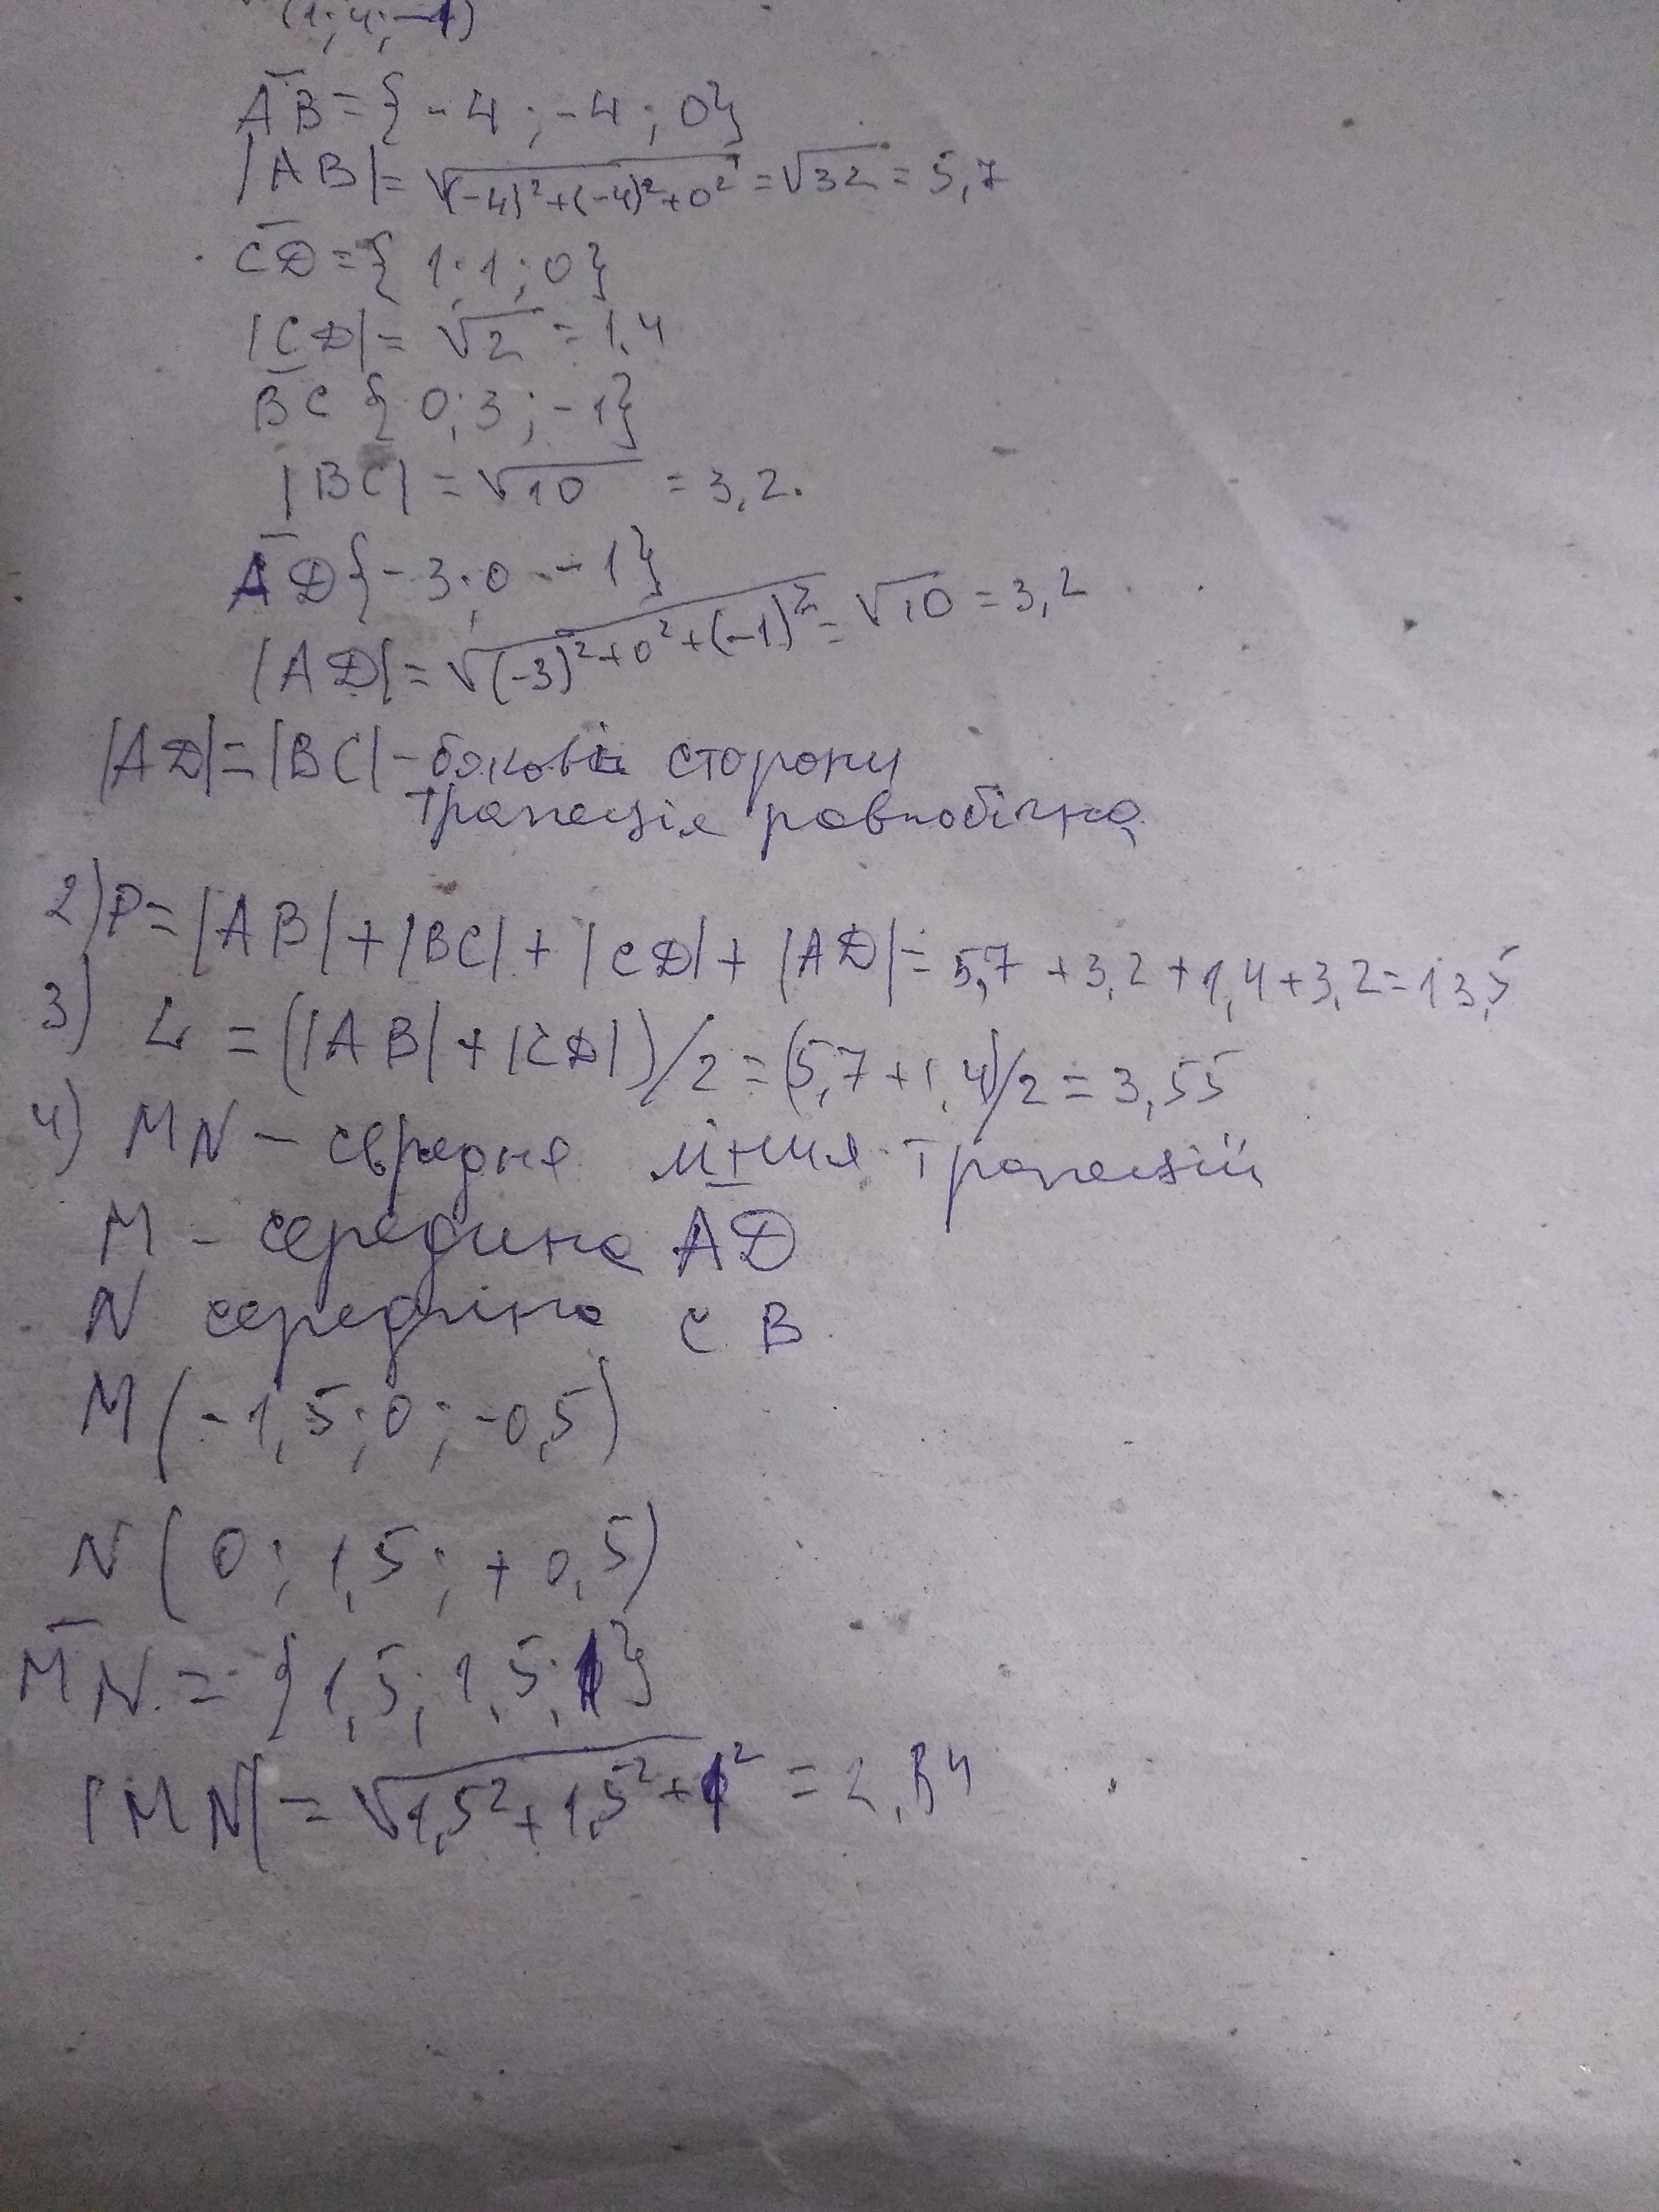 (1; 4; -1)
AB = {-4; -4; 0}
|AB| = √(-4)²+(-4)²+0² = √32 = 5,7
CD = {1; 1; 0}
|CD| = √2 = 1,4
BC {0; 3; -1}
|BC| = √10 = 3,2.
AD {-3; 0 -1}
|AD| = √(-3)²+0²+(-1)² = √10 = 3,2
|AD| = |BC| - бокові сторони
трапеція равнобічна
2) P = |AB| + |BC| + |CD| + |AD| = 5,7 + 3,2 + 1,4 + 3,2 = 13,5
3) L = (|AB| + |CD|)/2 = (5,7 + 1,4)/2 = 3,55
4) MN - трапеций
M - середина AD
N середина CB
M (-1,5; 0; -0,5)
N (0; 1,5; +0,5)
MN = {1,5; 1,5; 1}
|MN| = √1,5² + 1,5² + 1² =